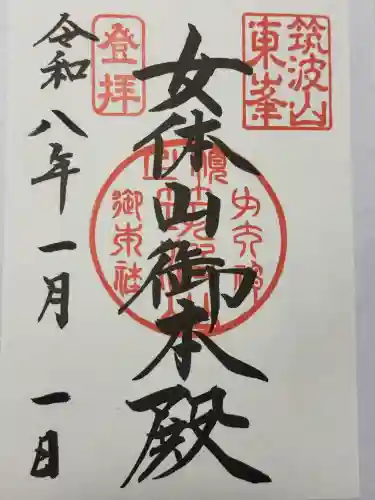 筑波山
東峯
女体山御本殿
登拝
令和八年一月一日